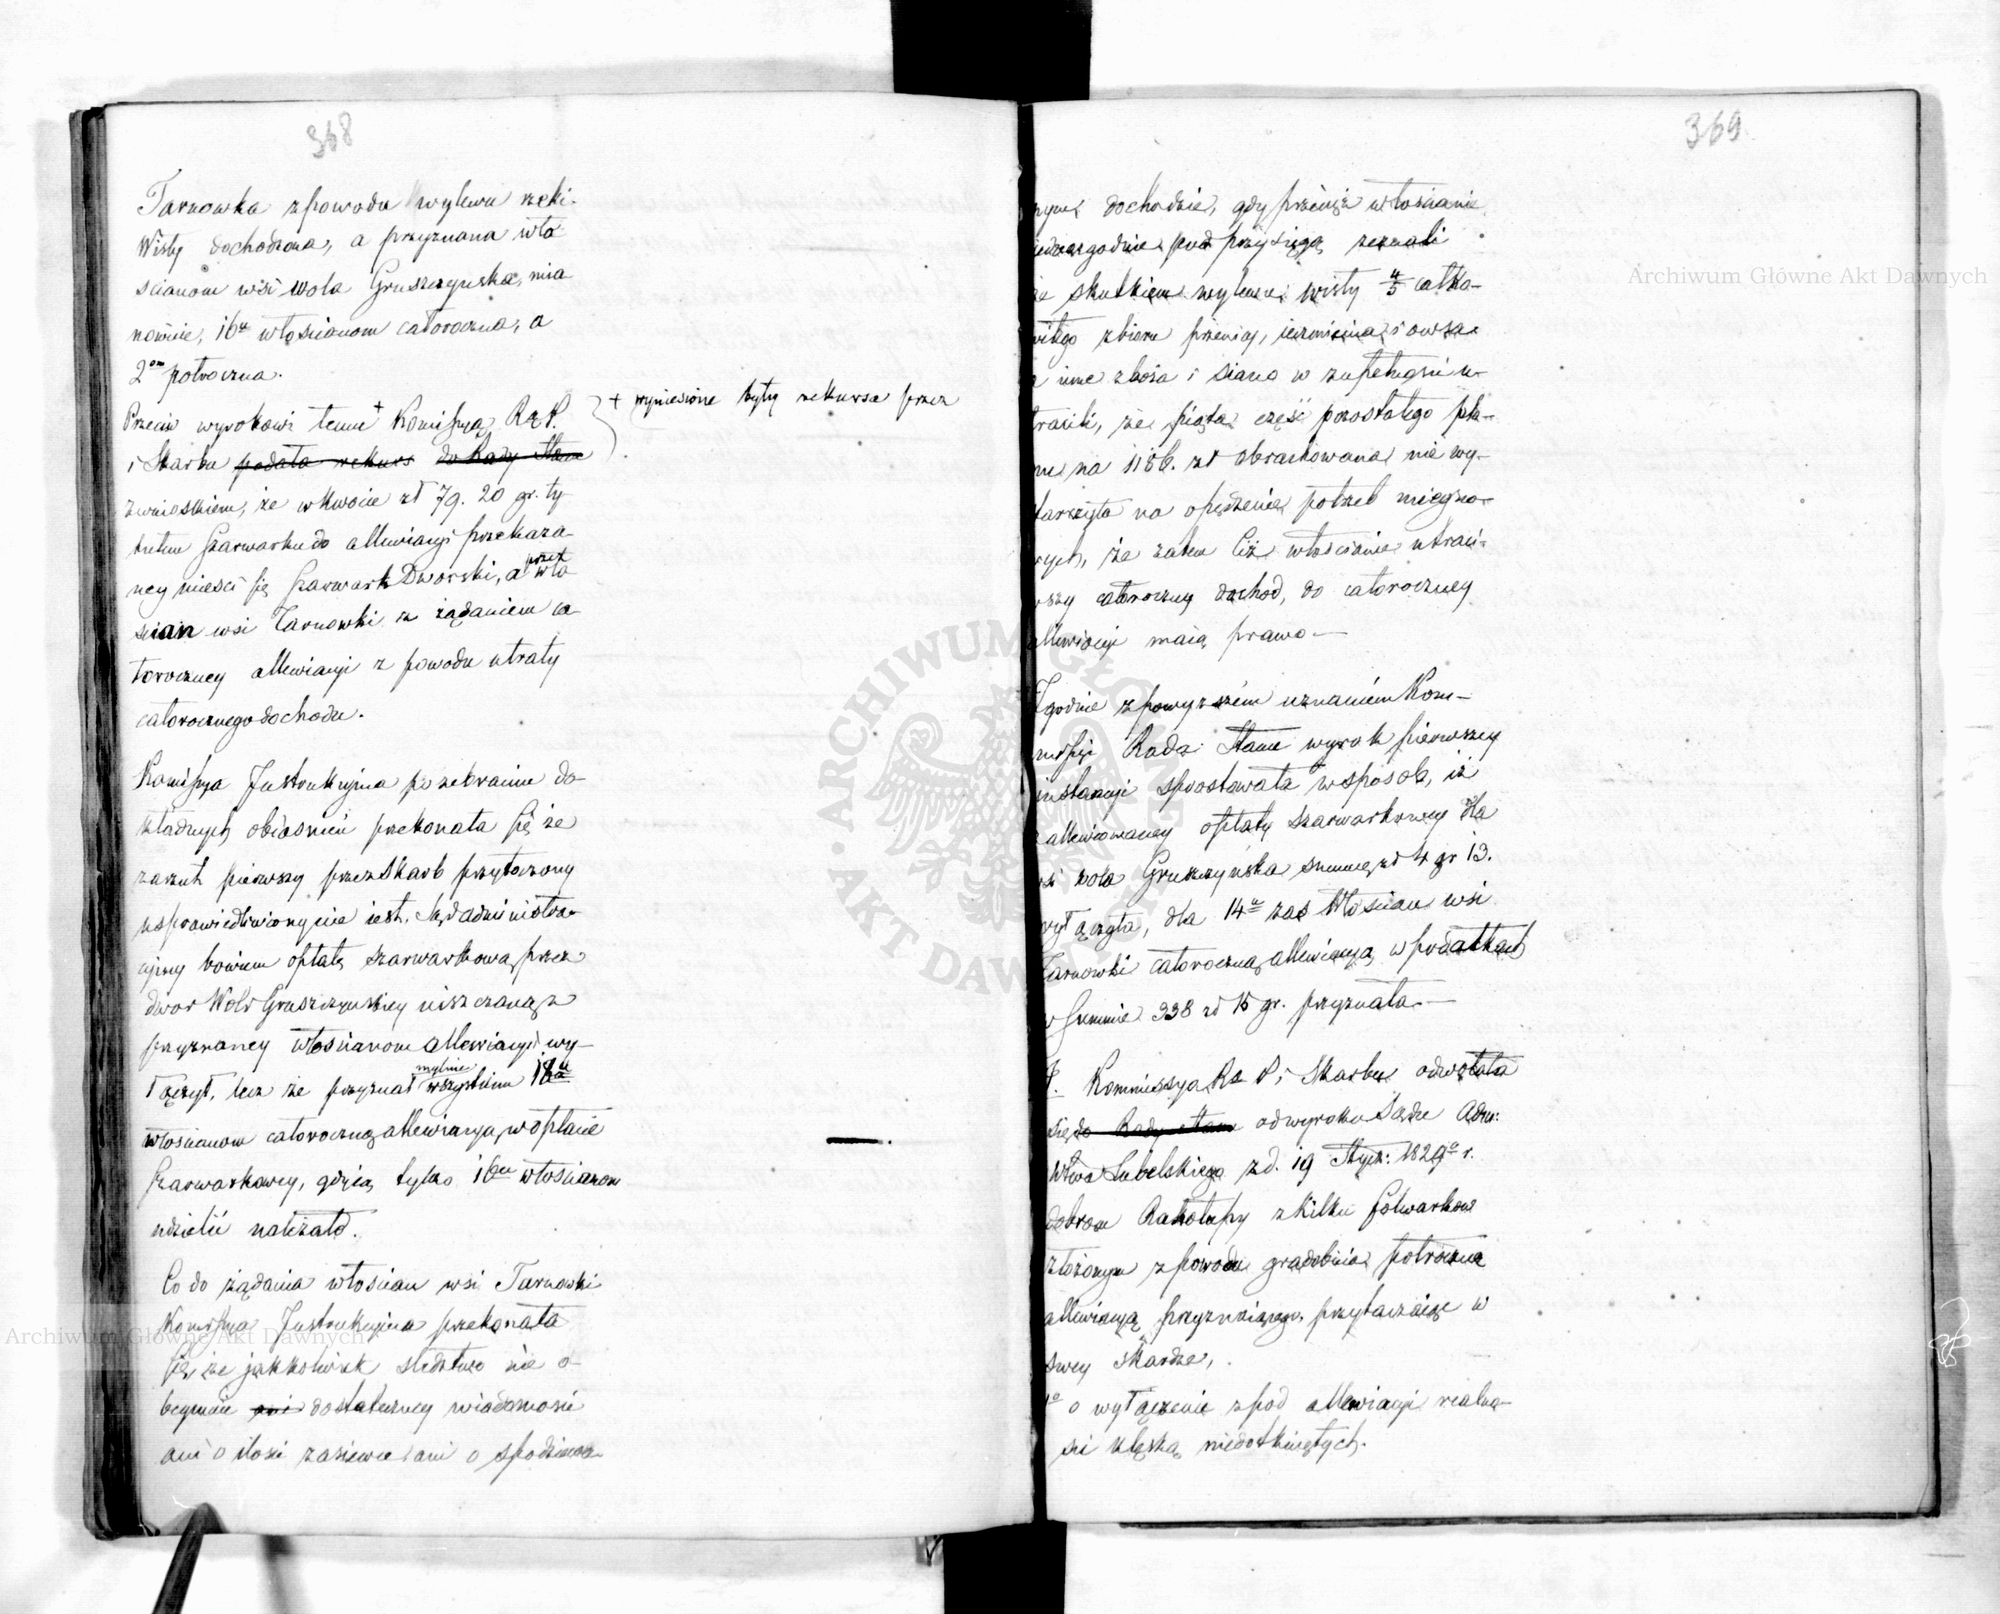 368
Tarnowka z powodu wylewu rzeki
Wisły dochodzona, a przyznana wło
ścianom wsi Wola Gruszczyńska, mia
nowicie, 16u włościanom całoroczna, a
2om półroczna.
Przeciw wyrokowi temu + Kommissya R. P.
i Skarbu podała rekurs do Rady Stanu
z wnioskiem, że w kwocie zł 79. 20 gr. ty
tułem szarwarku do allewiacyi przekaza
ney mieści się szarwark Dworski, a przez wło
ścian wsi Tarnowki z żądaniem ca
łoroczney allewiacyi z powodu utraty
całorocznego dochodu.
+ wyniesione były rekursa przez
Kommissya Instrukcyina po zebraniu do
kładnych obiasnień przekonała się że
zarzut pierwszy przez Skarb przytoczony
usprawiedliwiony nie iest. Sąd administra
cyiny bowiem opłatę szarwarkową przez
dwor Woli Gruszczynskiey uiszczaną z
przyznaney włościanom allewiacyi wy-
łączył, lecz że przyznał mylnie wszystkim 18u
włościanom całoroczną allewiacyą w opłacie
szarwarkowey, gdy ią tylko 16u włościanom
udzielić należało.
Co do żądania włościan wsi Tarnowki
Kommissya Instrukcyina przekonała
się, że jakkolwiek śledztwo nie o-
beymuie ani dostateczney wiadomości
ani o ilości zasiewu ani o spodziewa-
369
nym dochodzie, gdy przecież włościanie
jednozgodnie pod przysięgą zeznali
że skutkiem wylewu Wisły 4/5 całko-
witego zbioru pszenicy, ięczmienia i owsa
a inne zboża i siano w zupełności u-
tracili, że piąta część pozostałego plo-
nu na 1186. zł obrachowana nie wy-
starczyła na opędzenie potrzeb miejsco-
wych, że zatem Ciż włościanie utraci-
wszy całoroczny dochod, do całoroczney
allewiacyi maią prawo.—
Zgodnie z powyższém uznaniem Kom-
missyi Rada Stanu wyrok pierwszey
instancyi sprostowała w sposob, iż
z allewiowaney opłaty szarwarkowey dla
wsi Wola Gruszczyńska summę zł 4 gr 13.
wyłączyła, dla 14u zaś Włościan wsi
Tarnowki całoroczną allewiacyą w podatkach
w summie 338 zł 15 gr. przyznała.—
Kommissya R. P. i Skarbu odwołała
się do Rady Stanu od wyroku Sądu Adm:
Wztwa Lubelskiego z d. 19 Stycz: 1829o r.
dobrom Rakołupy z kilku folwarkow
złożonym z powodu gradobicia półroczną
allewiacyą przyznaiącego, przytaczaiąc w
swey skardze,
1o o wyłączenie z pod allewiacyi realno-
ści klęską niedotkniętych.
Archiwum Główne Akt Dawnych
Archiwum Główne Akt Dawnych
ARCHIWUM GŁÓWNE • AKT DAWNYCH •